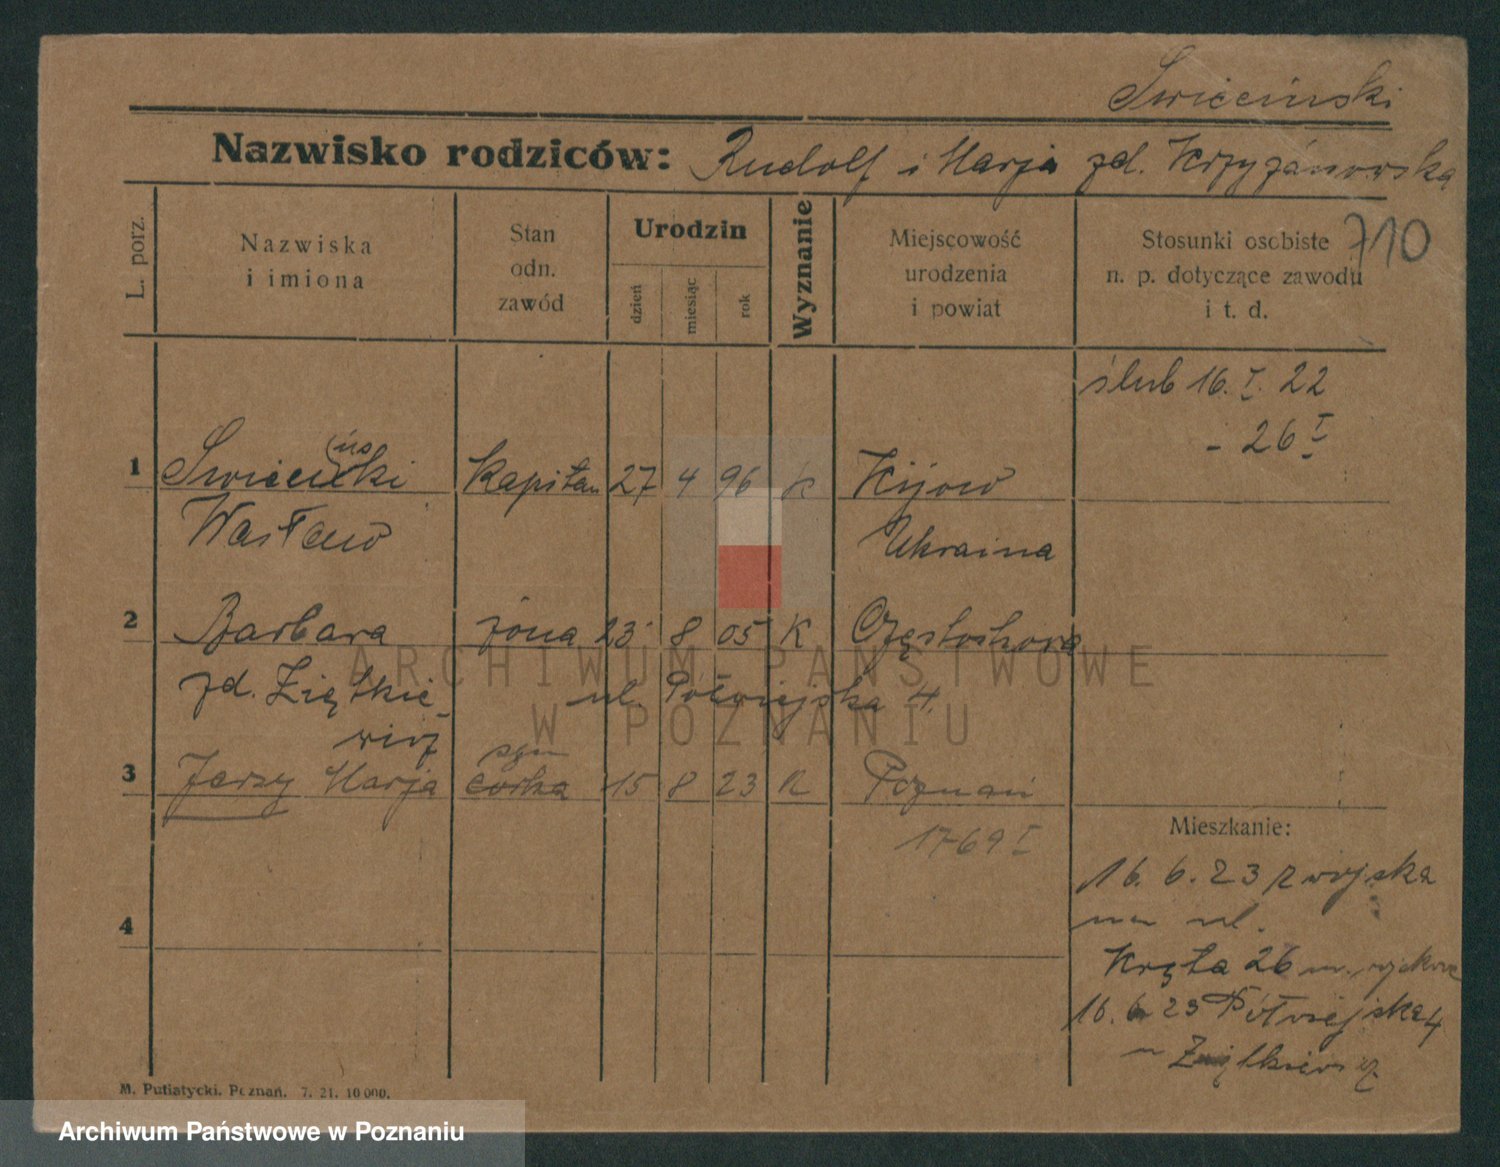 Swięcinski
Nazwisko rodziców: Rudolf i Marja zd. Krzyżanowska
710
L. porz.
Nazwiska
i imiona
Stan
odn.
zawód
Urodzin
dzień
miesiąc
rok
Wyznanie
Miejscowość
urodzenia
i powiat
Stosunki osobiste
n. p. dotyczące zawodu
i t. d.
ślub 16. I. 22
- 26 I
1 Kapitan 27 4 96 K Kijow
Wacław Ukraina
2 Barbara żona 23 8 05 K Częstochowa
zd. Ziętkie
wicz
ul. Półwiejska 4.
syn
3 Jerzy Marja córka 15 8 23 K Poznań
1769 I
Mieszkanie:
16. 6. 23 z wojska
ul.
Kręta 26
16. 6. 23 Półwiejska 4
Ziętkiewicz
4
M. Putiatycki. Poznań. 7. 21. 10 000.
ARCHIWUM PAŃSTWOWE
W POZNANIU
Archiwum Państwowe w Poznaniu